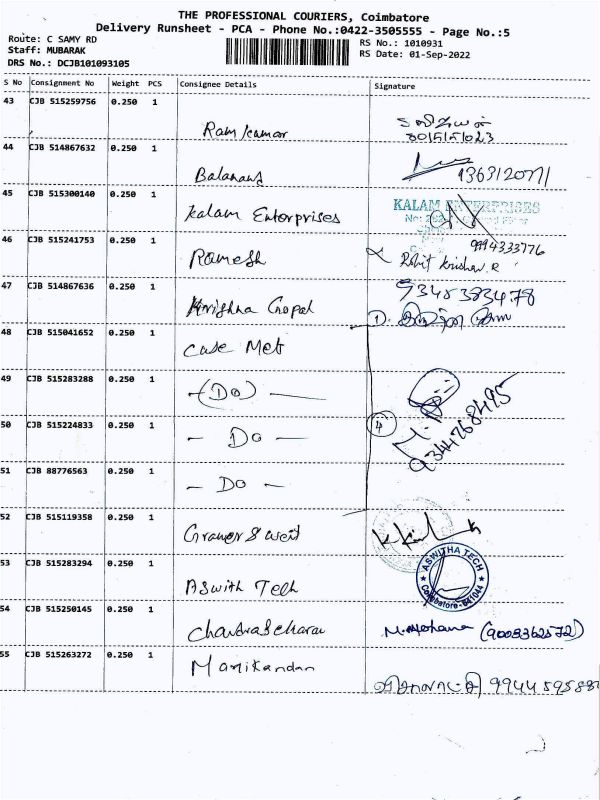 THE PROFESSIONAL COURIERS, Coimbatore
Delivery Runsheet - PCA - Phone No.:0422-3505555 - Page No.:5
Route: C SAMY RD
RS No.: 1010931
Staff: MUBARAK
RS Date: 01-Sep-2022
DRS No.: DCJB101093105
S No Consignment No Weight PCS Consignee Details Signature
43 CJB 515259756 0.250 1
Ramkumar
44 CJB 514867632 0.250 1
Balanand
45 CJB 515300140 0.250 1
Kalam Enterprises KALAM ENTERPRISES
46 CJB 515241753 0.250 1 9994333776
Ramesh Rohit Krishna.R
47 CJB 514867636 0.250 1 9345383478
Krishna Gopal D.
48 CJB 515041652 0.250 1
Case Met
49 CJB 515283288 0.250 1
-(Do)-
50 CJB 515224833 0.250 1 4
- Do - 9344768495
51 CJB 88776563 0.250 1
- Do -
52 CJB 515119358 0.250 1
53 CJB 515283294 0.250 1 ASWITHA TECH
Aswith Tech Coimbatore-641044
54 CJB 515250145 0.250 1
Chandrasekaran M. Mohana (9003362572)
55 CJB 515263272 0.250 1
Manikandan